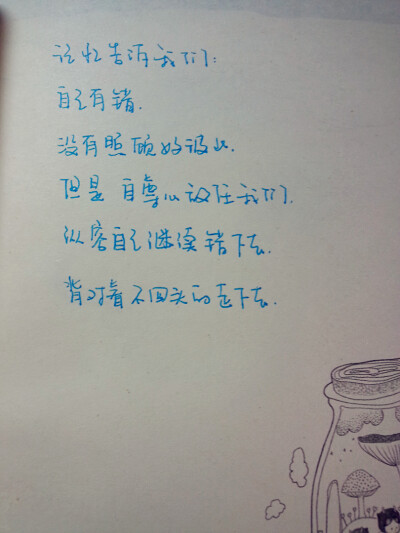 记忆告诉我们:
自己有错.
没有照顾好彼此.
但是 自尊心放任我们.
纵容自己继续错下去.
背对着不回头的走下去.